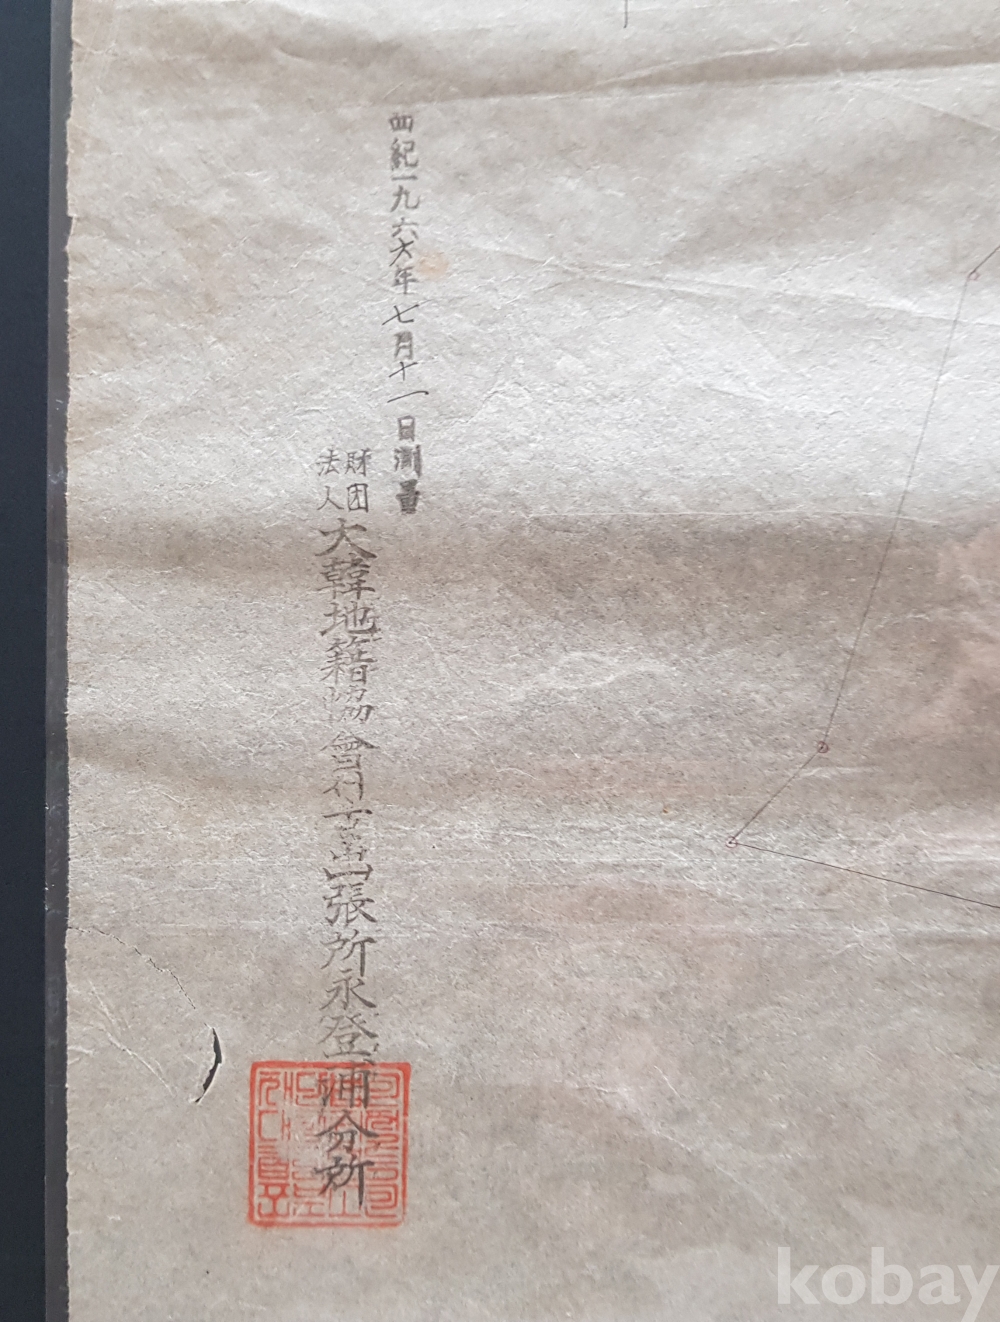 西紀一九六六年七月十一日測量
財团
法人
大韓地籍協會 出張所永登浦分所
kobay